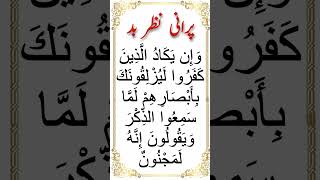 پرانی نظر بد
وَإِن يَكَادُ الَّذِينَ
كَفَرُوا لَيُزْلِقُونَكَ
بِأَبْصَارِهِمْ لَمَّا
سَمِعُوا الذِّكْرَ
وَيَقُولُونَ إِنَّهُ
لَمَجْنُونٌ